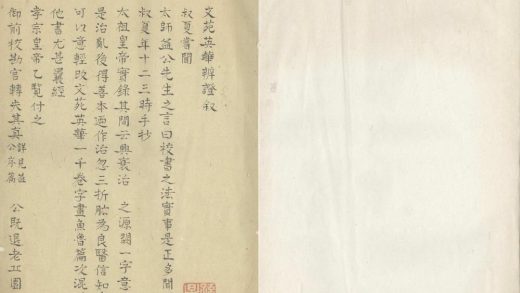 文苑英華辨證叙
叔夏嘗聞
太師益公先生之言曰校書之法實事是正多聞
叔夏年十二三時手抄
太祖皇帝實錄其間云興衰治 之源闕一字意
是治亂後得善本廼作治忽三折肱為良醫信知
可以意輕改文苑英華一千卷字畫魚魯篇次混
他書尤甚曩經
孝宗皇帝乙覽付之
御前校勘官轉失其真 詳見益公序篇 公既退老丘園